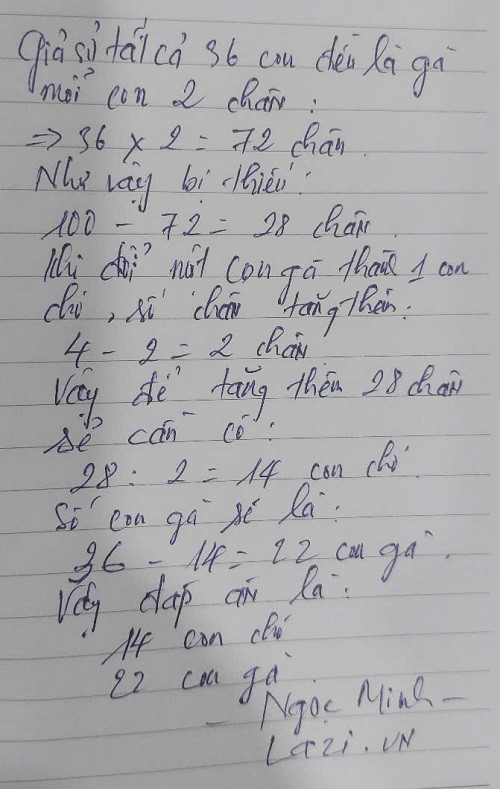 Giả sử tất cả 36 con đều là gà
mỗi con 2 chân :
=> 36 x 2 = 72 chân.
Như vậy bị thiếu :
100 - 72 = 28 chân.
Khi đổi một con gà thành 1 con
chó, số chân tăng thêm:
4 - 2 = 2 chân
Vậy để tăng thêm 28 chân
sẽ cần có :
28 : 2 = 14 con chó.
Số con gà sẽ là :
36 - 14 = 22 con gà.
Vậy đáp án là :
14 con chó
22 con gà.
- Ngọc Minh -
Lazi.VN